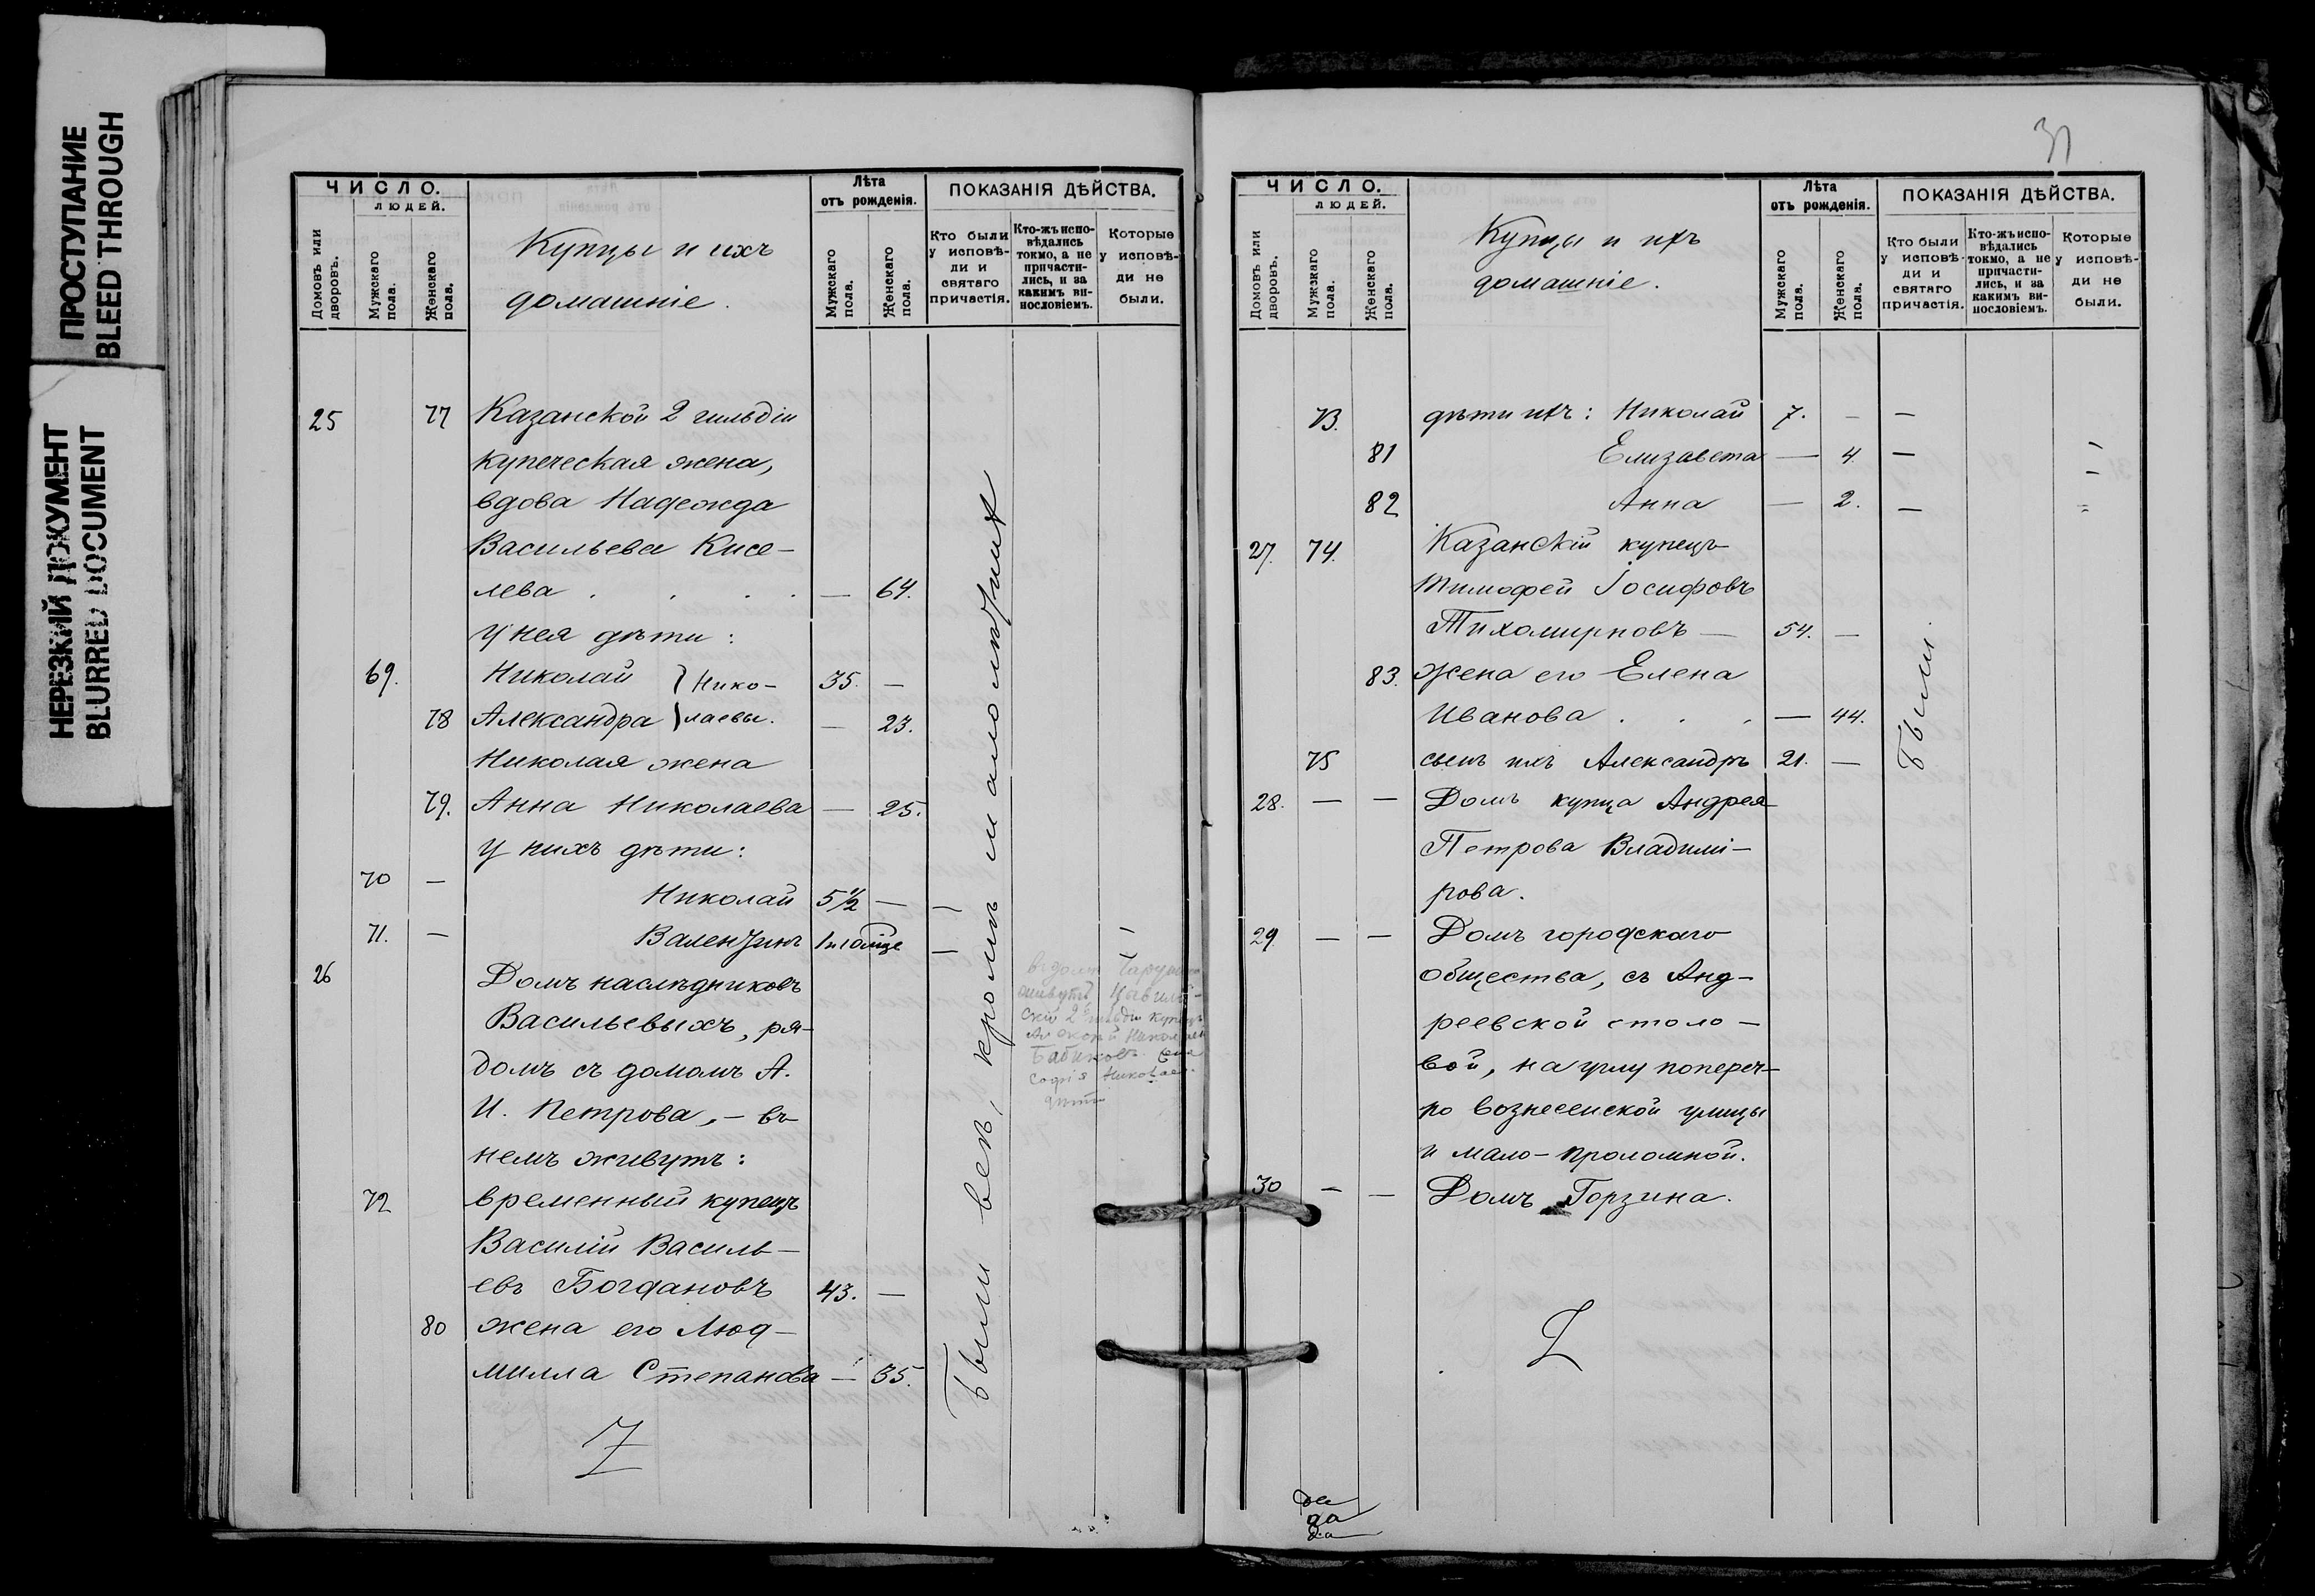 ПРОСТУПАНИЕ
BLEED THROUGH
НЕРЕЗКИЙ ДОКУМЕНТ
BLURRED DOCUMENT
ЧИСЛО.
ЛЮДЕЙ.
Домовъ или дворовъ.
Мужскаго пола.
Женскаго пола.
Купцы и ихъ
домашніе.
Лѣта
отъ рожденія.
Мужскаго пола.
Женскаго пола.
ПОКАЗАНІЯ ДѢЙСТВА.
Кто были у исповѣди и святаго причастія.
Кто-жъ исповѣдались токмо, а не причастились, и за какимъ винословіемъ.
Которые у исповѣди не были.
25 77 Казанской 2 гильдіи
купеческая жена,
вдова Надежда
Васильева Кисе-
лева . . . . — 64.
у нея дѣти:
69. Николай } Нико- 35. —
78 Александра } лаевы. — 23.
Николая жена
79. Анна Николаева — 25.
у нихъ дѣти:
70 —
Николай 5½ — —
71. — Валентинъ —
26 Домъ наслѣдниковъ
Васильевыхъ, ря-
домъ съ домомъ А.
И. Петрова, — въ
немъ живутъ:
72 временный купецъ
Василій Василь-
евъ Богдановъ 43. —
80 жена его Люд-
милла Степанова — 35.
Z
Были всѣ, кромѣ малолѣтнихъ
въ домѣ
живутъ Цивиль-
скій 2 гильдіи купецъ
Николаев
Бабиковъ.
Софія Николаев.
дѣти
31
ЧИСЛО.
ЛЮДЕЙ.
Домовъ или дворовъ.
Мужскаго пола.
Женскаго пола.
Купцы и ихъ
домашніе.
Лѣта
отъ рожденія.
Мужскаго пола.
Женскаго пола.
ПОКАЗАНІЯ ДѢЙСТВА.
Кто были у исповѣди и святаго причастія.
Кто-жъ исповѣдались токмо, а не причастились, и за какимъ винословіемъ.
Которые у исповѣди не были.
73. дѣти ихъ: Николай 7. — —
81 Елизавета — 4 —
82 Анна — 2. —
27. 74. Казанскій купецъ
Тимофей Іосифовъ
Тихомирновъ — 54. —
83. жена его Елена
Иванова . . . — 44.
75 сынъ ихъ Александръ 21. —
Были.
28. — — Домъ купца Андрея
Петрова Владимі-
рова.
29 — — Домъ городскаго
общества, съ Анд-
реевской столо-
вой, на углу попереч-
но вознесенской улицы
и мало-проломной.
30 — — Домъ Горзина.
Z
да